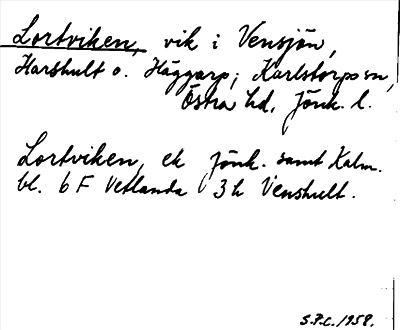 Lortviken, vik i Vensjön,
Harshult o. Häggarp; Karlstorps sn,
Östra hd, Jönk. l.
Lortviken, ek Jönk. samt Kalm.
bl. 6 F Vetlanda 3 h Venshult.
S.P.C. 1958.